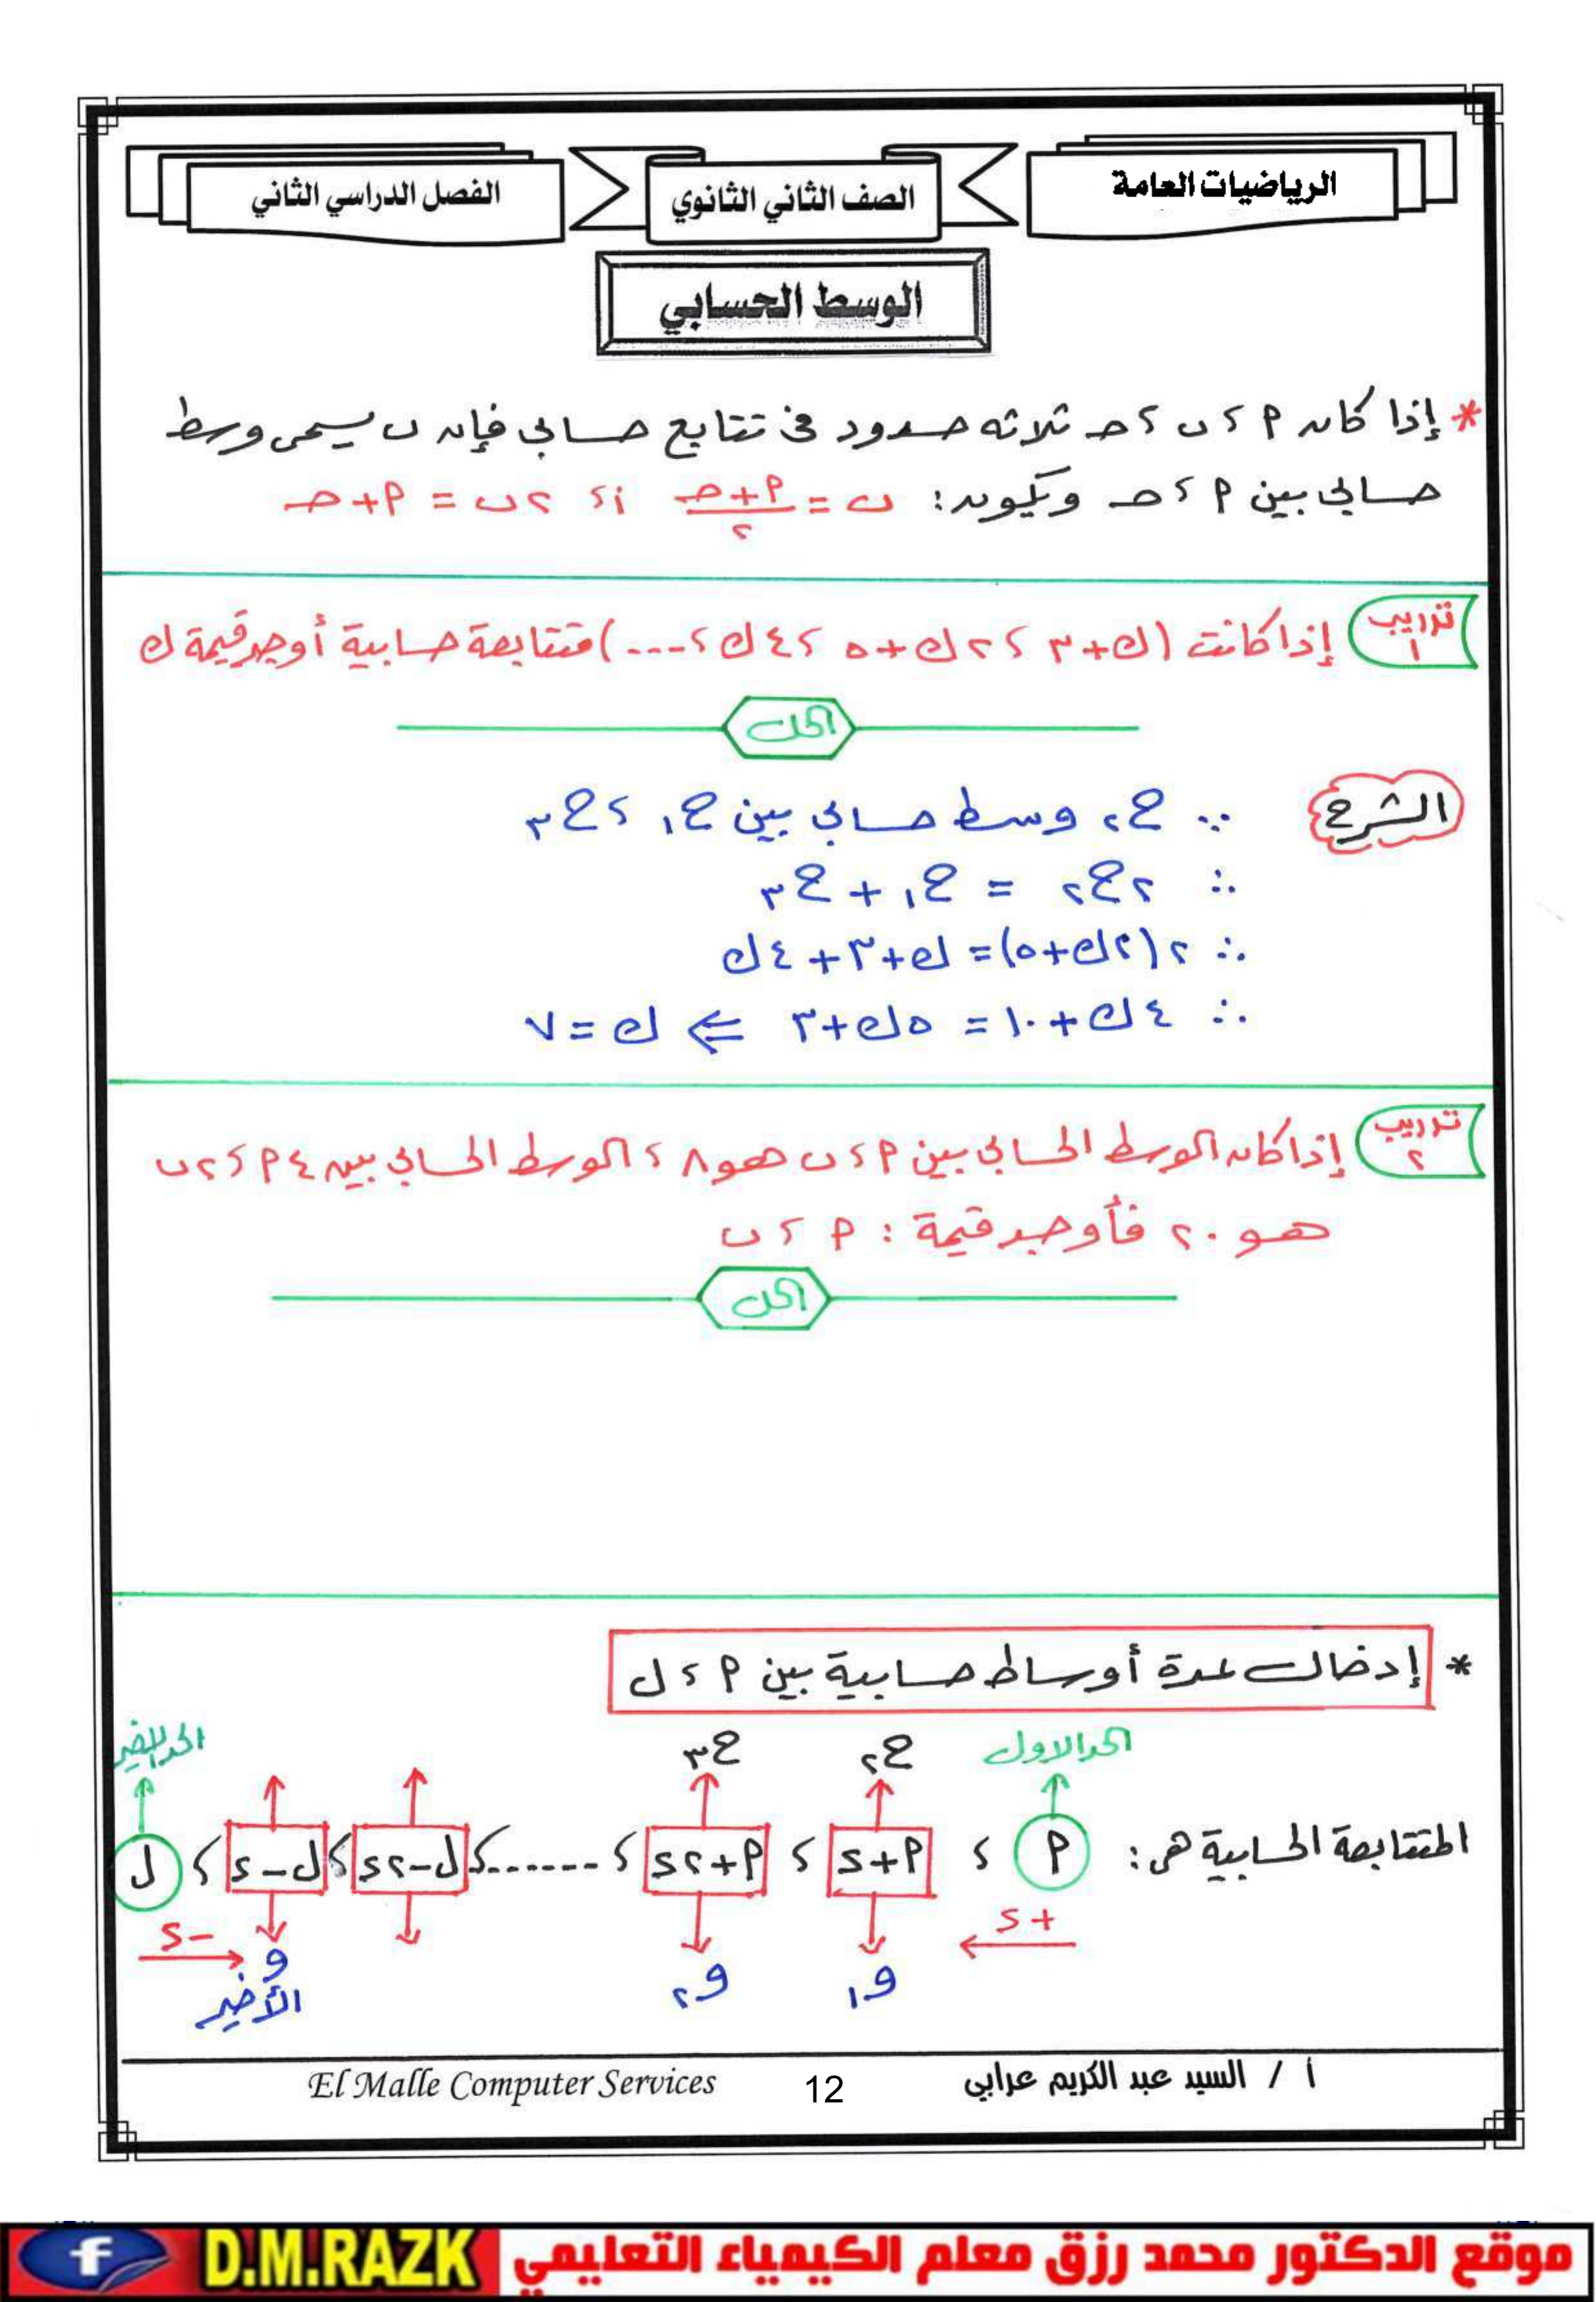 الرياضيات العامة
الصف الثاني الثانوي
الفصل الدراسي الثاني
الوسط الحسابي
* إذا كان م ، ب ، حـ ثلاثة حدود في تتابع حسابي فإن ب يسمى وسط
حسابي بين م ، حـ ويكون: ب = (م + حـ)/٢ أ، ٢ب = م + حـ
تدريب ١ إذا كانت (ك+٣ ، ٢ك+٥ ، ٤ك ، ....) متتابعة حسابية أوجد قيمة ك
الحل
الشرح ∵ ح٢ وسط حسابي بين ح١ ، ح٣
∴ ٢ح٢ = ح١ + ح٣
∴ ٢(٢ك+٥) = ك+٣+٤ك
∴ ٤ك+١٠ = ٥ك+٣ ⇐ ك = ٧
تدريب ٢ إذا كان الوسط الحسابي بين م ، ب هو ٨ ، الوسط الحسابي بين ٤م ، ٢ب
هو ٢٠ فأوجد قيمة : م ، ب
الحل
* إدخال عدة أوساط حسابية بين م ، ل
الحد الاول ح٢ ح٣ الحد الأخير
المتتابعة الحسابية هي: م ، م+د ، م+٢د ، ....... ، ل-٢د ، ل-د ، ل
+د -د
و١ و٢ و الأخير
أ / السيد عبد الكريم عرابي 12 El Malle Computer Services
موقع الدكتور محمد رزق معلم الكيمياء التعليمي D.M.RAZK f